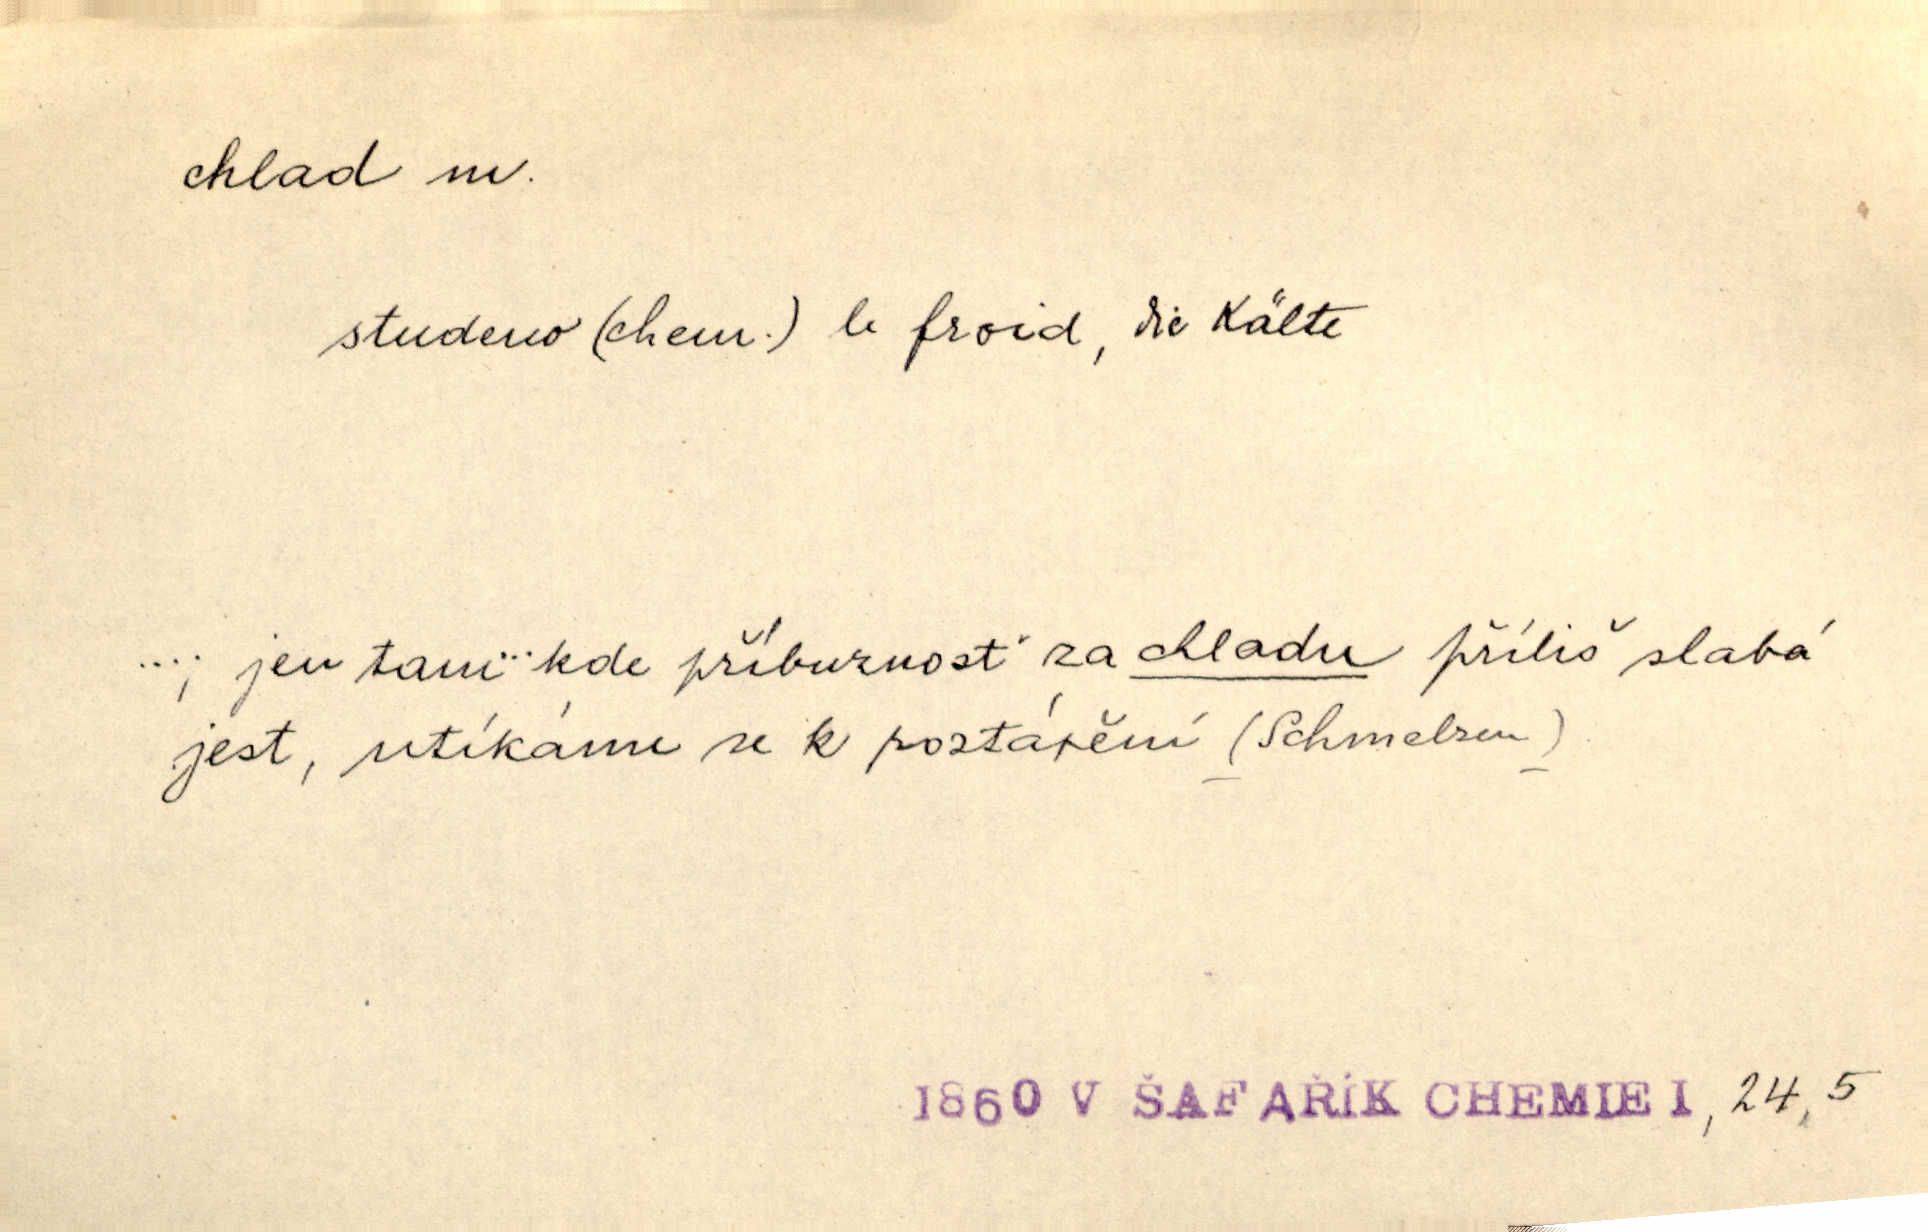 chlad m.
studeno (chem.) le froid, die Kälte
...; jen tam ... kde příbuznosť za chladu příliš slabá
jest, utíkáme se k roztápění (Schmelzen)
1860 V ŠAFAŘÍK CHEMIE I, 24, 5